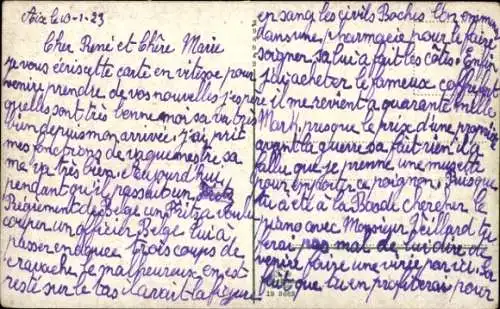 Aix le 10-1-23
Cher René et Chère Marie
je vous écris cette carte en vitesse pour
venire prendre de vos nouvelles j'espère
quelles sont très bonne moi sa va très
bien depuis mon arrivée, j'ai prit
mes fonctions de vaguemestre sa
me va très bien et aujourd'hui
pendant qu'il passait un
Régiment de Belge un Fritz a voulu
couper un officier Belge lui à
passer en aquec trois coups de
cravache le malheureux en est
resté sur le tas il avait la figure
en sang les civils Boches l'on emmener
dans une pharmacie pour le faire
soigner sa lui à fait les côtes. Enfin
j'ai acheter le fameux coffre port
il me revient a quarante mille
Mark, presque le prix d'une
avant la guerre sa fait rien il a
fallu que je prenne une musette
pour emporter ce pognon. Puisque
tu a été à la Bande chercher le
piano avec Monsieur Feillard tu
ferai pas mal de lui dire de
venire faire une virée par ici. Sa
fait que tu en profiterais pour